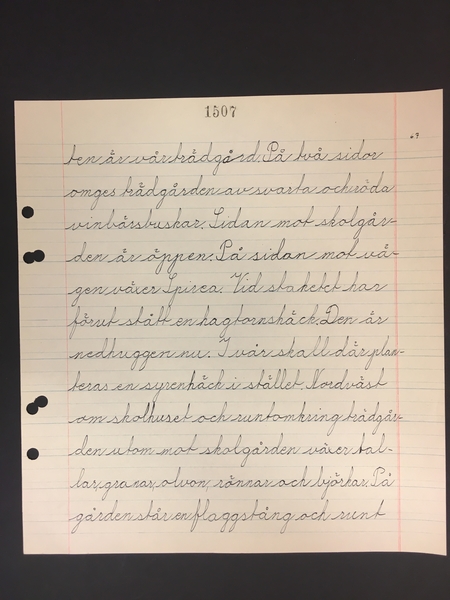 1507
ten är vår trädgård. På två sidor
omges trädgården av svarta och röda
vinbärsbuskar. Sidan mot skolgår-
den är öppen. På sidan mot vä-
gen växer Spirea. Vid staketet har
förut stått en hagtornshäck. Den är
nedhuggen nu. I vår skall där plan-
teras en syrenhäck i stället. Nordväst
om skolhuset och runtomkring trädgår-
den utom mot skolgården växer tal-
lar, granar, olvon, rönnar och björkar. På
gården står en flaggstång och runt